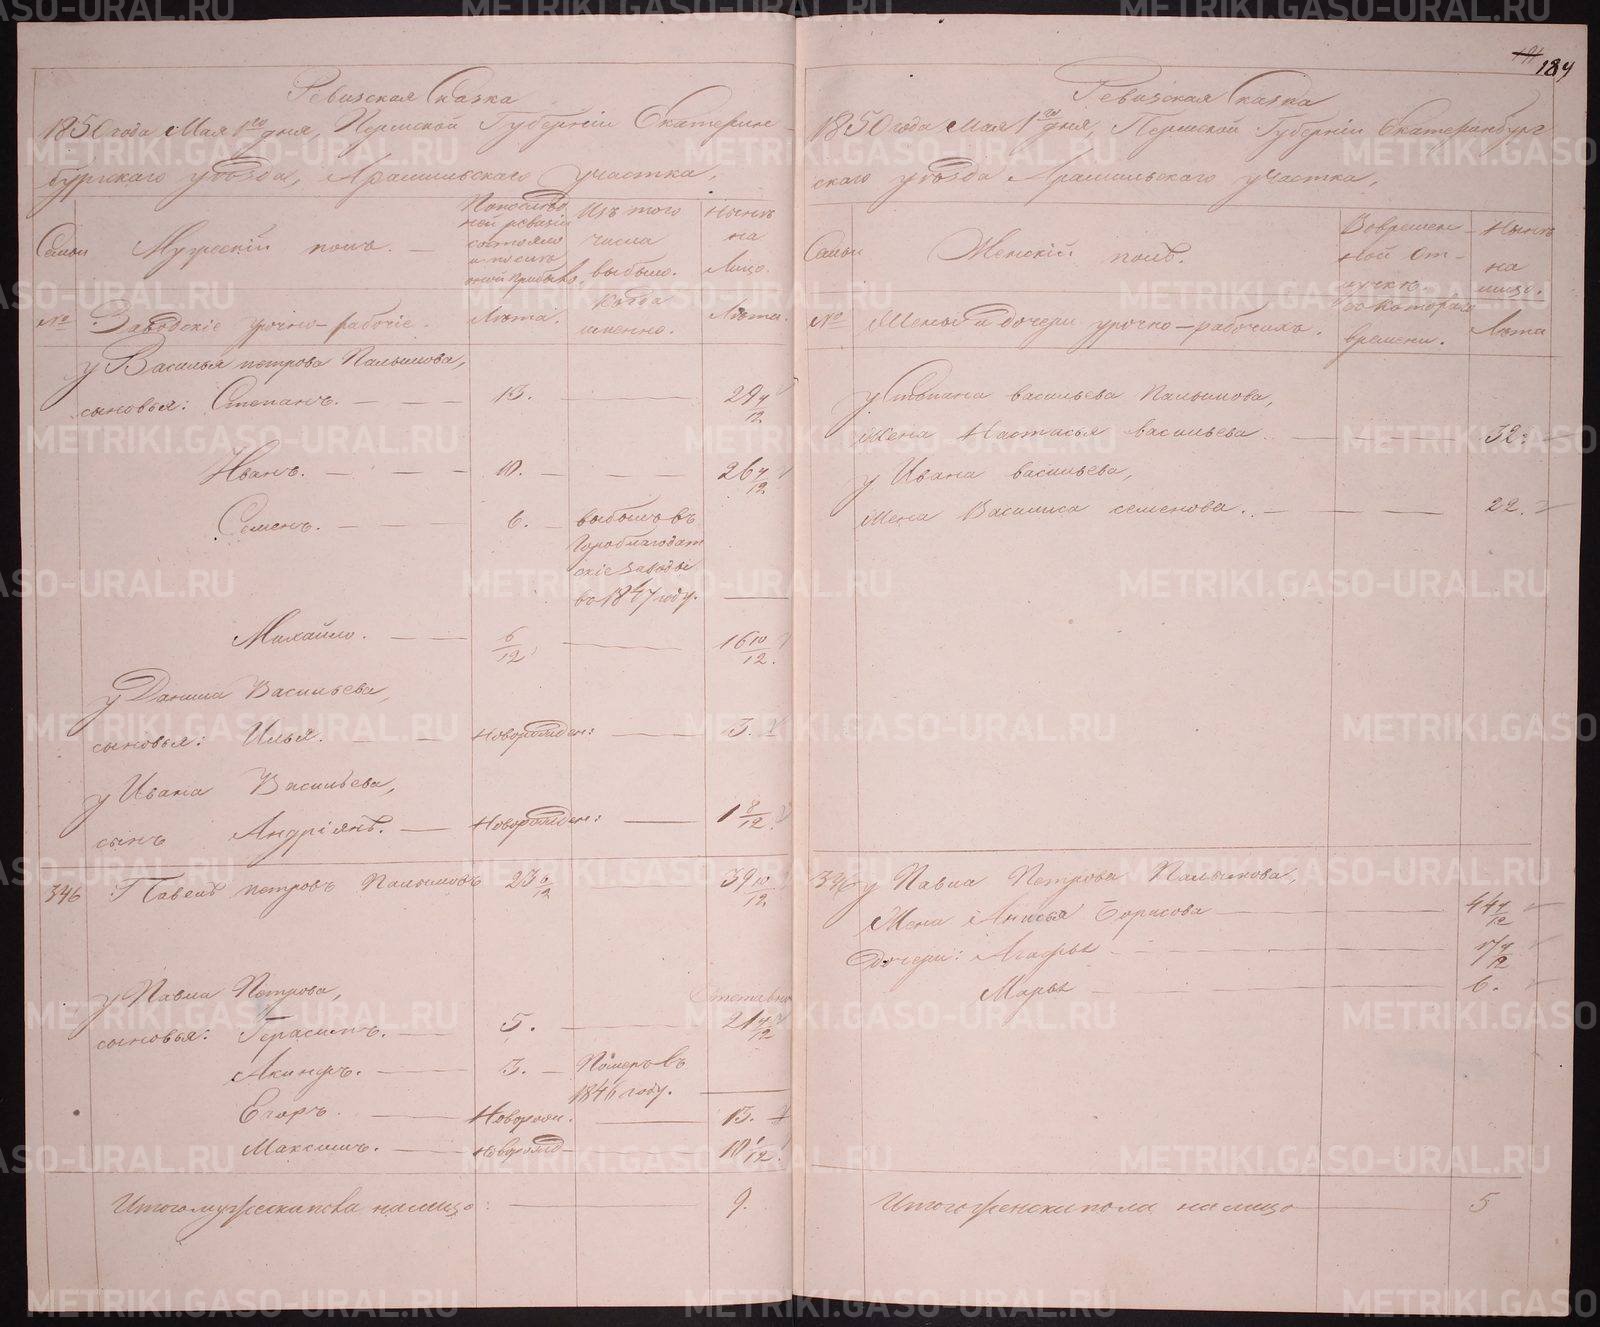 Ревизская Сказка
1850 года Мая 1го дня, Пермской Губернии Екатерин-
бургскаго уѣзда, Арамильскаго участка,
Семьи
Мужескій полъ.
По послѣд-
ней ревизіи
состояло
и послѣ
оной прибыло.
Изъ того
числа
выбыло.
Нынѣ
на
лицо.
№
Заводскіе урочно-рабочіе.
Лѣта.
Когда
именно.
Лѣта.
у Василья петрова Пальимова,
сыновья: Степанъ. 13. 29 4/12
Иванъ. 10. 26 4/12
Семенъ. 6. выбылъ въ
Гороблагодат
скіе заводы
въ 1847 году.
Михайло. 6/12 16 10/12.
у Данила Васильева,
сыновья: Илья. Новорожден: 3.
у Ивана Васильева,
сынъ Андріянъ. Новорожден: 1 8/12.
346 Павелъ петровъ Пальимовъ 23 6/12 39 10/12
у Павла Петрова,
сыновья: Герасимъ. 5. 21 4/12
Акинфъ. 3. Померъ въ
1846 году.
Егоръ. Новорожд. 13.
Максимъ. Новорожд 10 1/12.
Итого мужеска пола на лицо: 9.
184
Ревизская Сказка
1850 года Мая 1го дня, Пермской Губерніи Екатеринбург
скаго уѣзда Арамильскаго участка,
Семьи
Женскій полъ.
Во времен-
ной от-
лучкѣ.
Нынѣ
на
лицо.
№
Жены и дочери урочно-рабочихъ.
Съ котораго
времени.
Лѣта
у Степана васильева Пальимова,
Жена Настасья васильева 32.
у Ивана васильева,
Жена Василиса семенова. 22.
346 у Павла Петрова Пальимова,
Жена Анисья Борисова 44 4/12
Дочери: Агафья 17 4/12
Марья 6.
Итого женска пола на лицо 5
METRIKI.GASO-URAL.RU